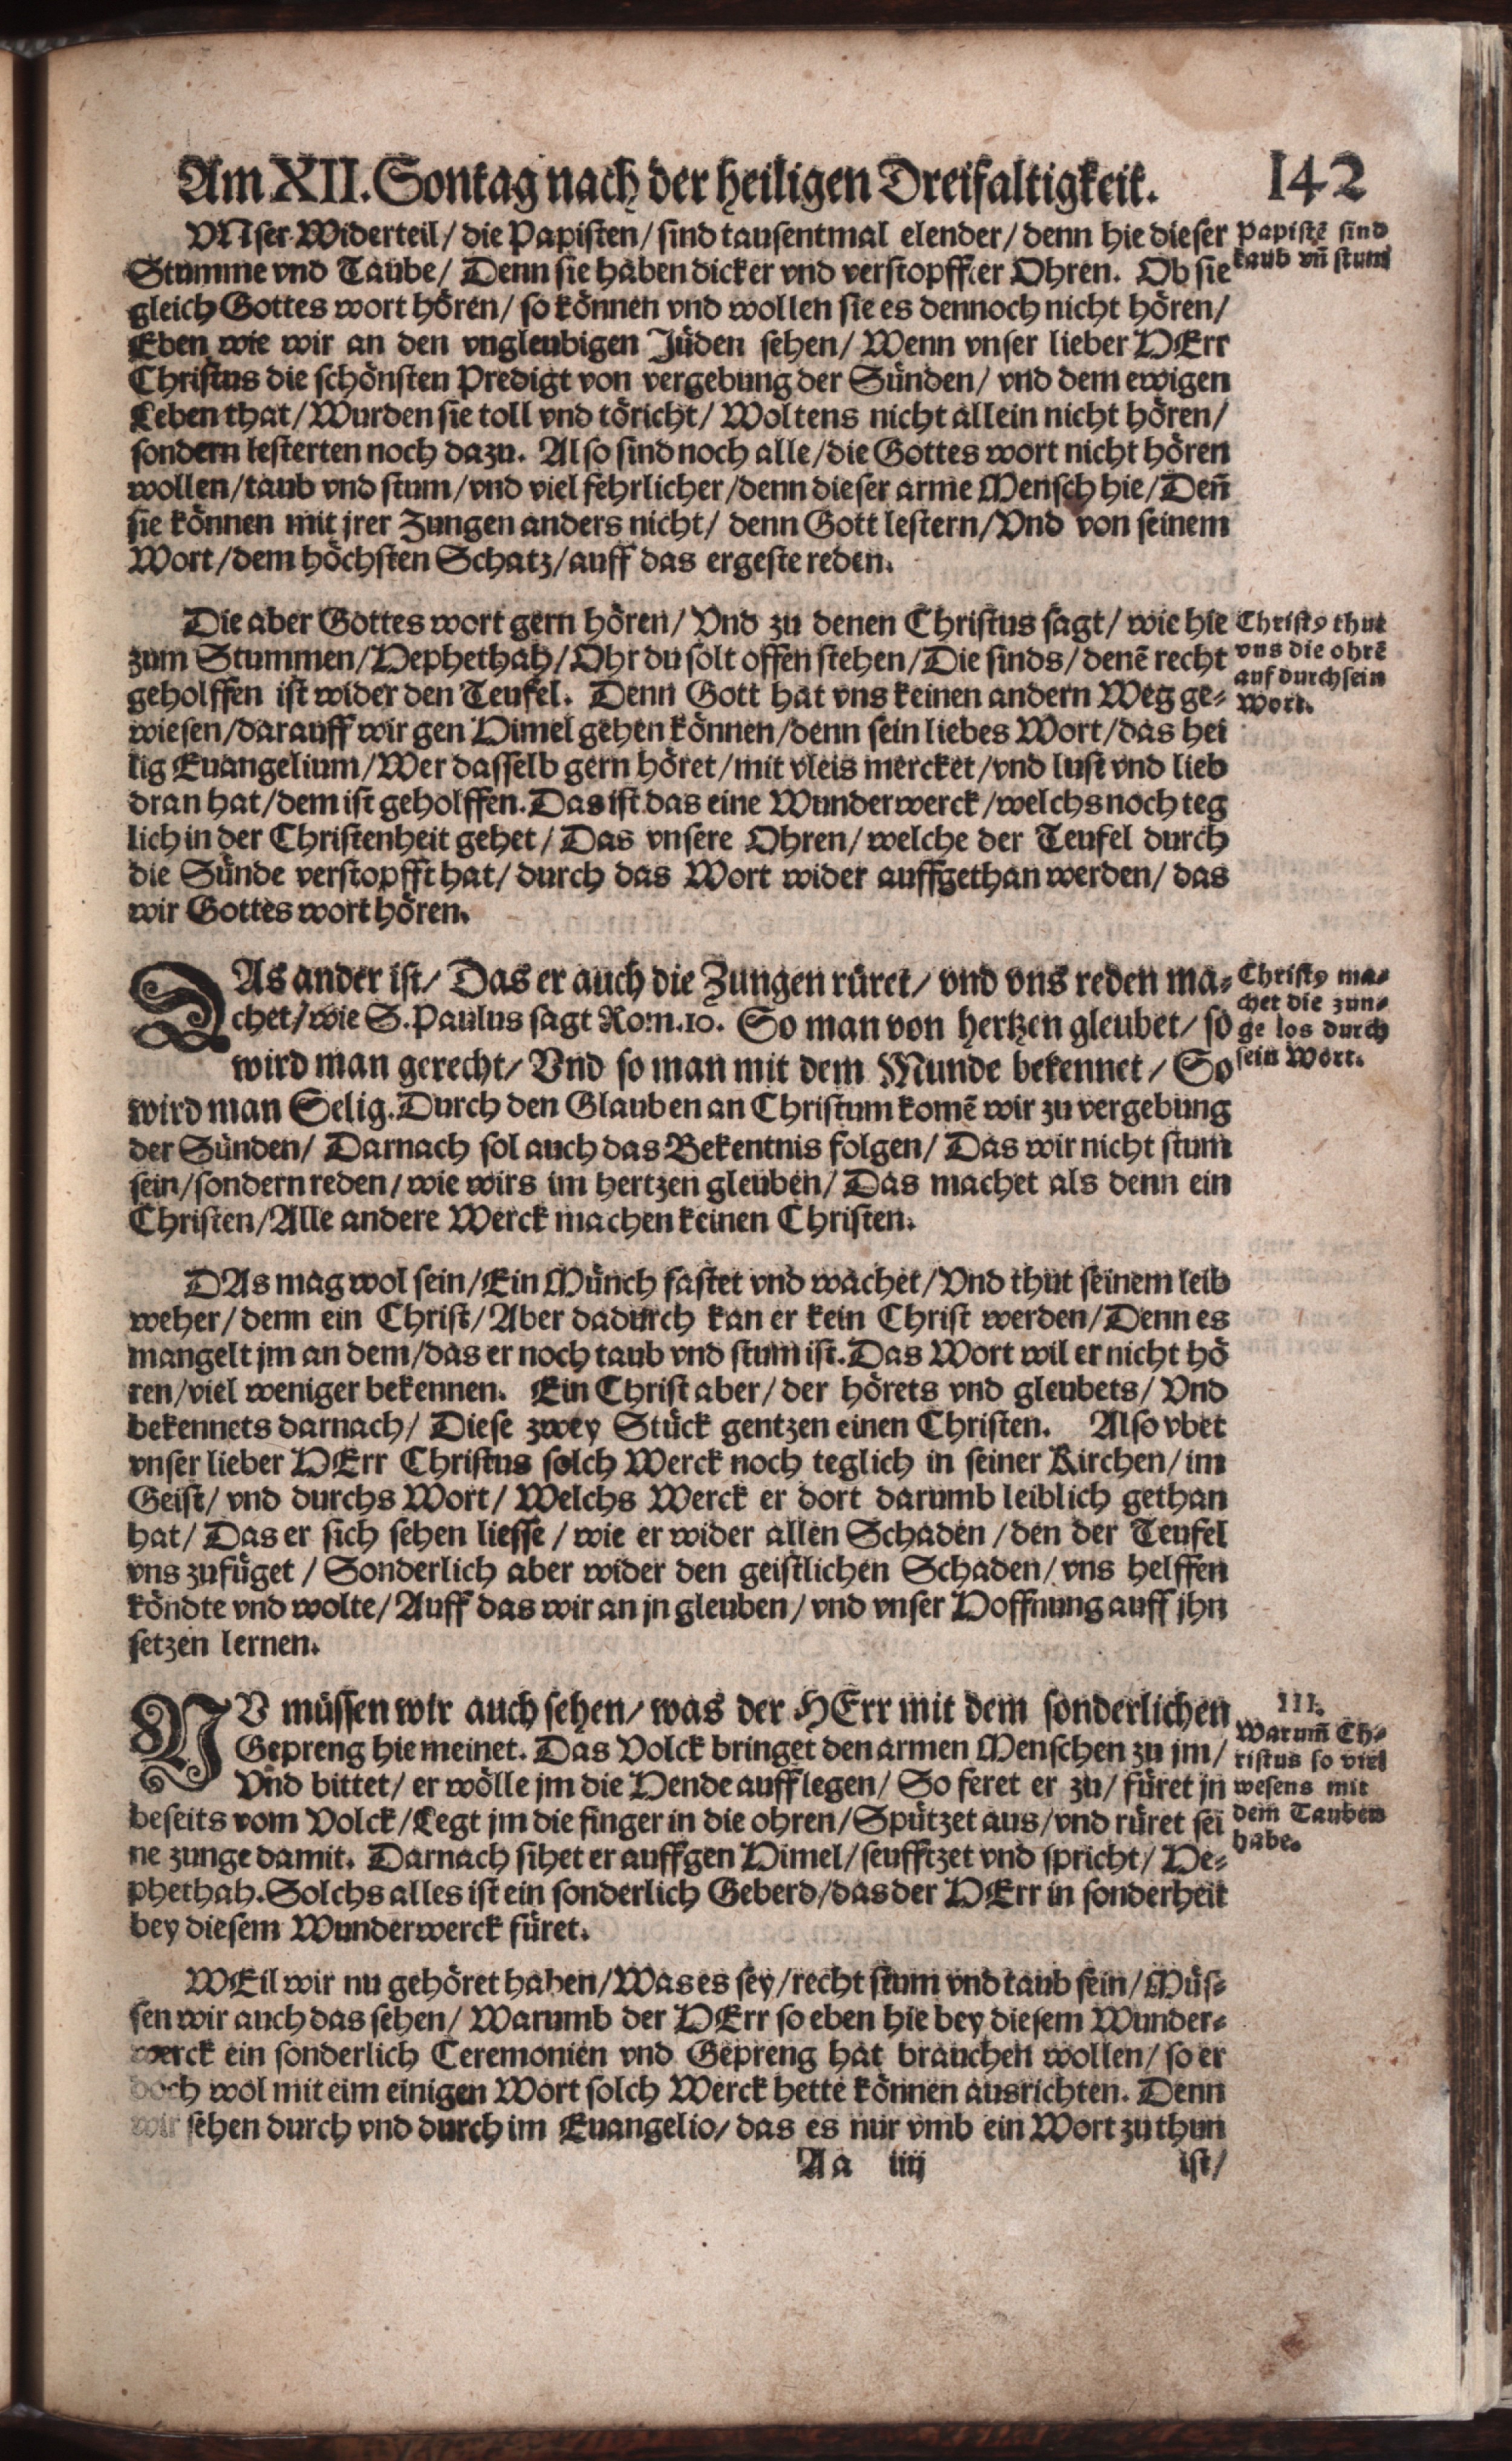 Am XII. Sontag nach der heiligen Dreifaltigkeit. 142
VNser Widerteil/ die Papisten/ sind tausentmal elender/ denn hie dieser
Stumme vnd Taube/ Denn sie haben dicker vnd verstopffter Ohren. Ob sie
gleich Gottes wort hören/ so können vnd wollen sie es dennoch nicht hören/
Eben wie wir an den vngleubigen Jüden sehen/ Wenn vnser lieber HErr
Christus die schönsten Predigt von vergebung der Sünden/ vnd dem ewigen
Leben that/ Wurden sie toll vnd töricht/ Woltens nicht allein nicht hören/
sondern lesterten noch dazu. Also sind noch alle/ die Gottes wort nicht hören
wollen/ taub vnd stum/ vnd viel fehrlicher/ denn dieser arme Mensch hie/ Deñ
sie können mit jrer Zungen anders nicht/ denn Gott lestern/ Vnd von seinem
Wort/ dem höchsten Schatz/ auff das ergeste reden.
Papistẽ sind
taub vñ stum̃
Die aber Gottes wort gern hören/ Vnd zu denen Christus sagt/ wie hie
zum Stummen/ Hephethah/ Ohr du solt offen stehen/ Die sinds/ denẽ recht
geholffen ist wider den Teufel. Denn Gott hat vns keinen andern Weg ge-
wiesen/ darauff wir gen Himel gehen können/ denn sein liebes Wort/ das hei
lig Euangelium/ Wer dasselb gern höret/ mit vleis mercket/ vnd lust vnd lieb
dran hat/ dem ist geholffen. Das ist das eine Wunderwerck/ welchs noch teg
lich in der Christenheit gehet/ Das vnsere Ohren/ welche der Teufel durch
die Sünde verstopfft hat/ durch das Wort wider auffgethan werden/ das
wir Gottes wort hören.
Christꝰ thut
vns die ohrẽ
auf durch sein
Wort.
DAs ander ist/ Das er auch die Zungen rüret/ vnd vns reden ma-
chet/ wie S. Paulus sagt Rom. 10. So man von hertzen gleubet/ so
wird man gerecht/ Vnd so man mit dem Munde bekennet/ So
wird man Selig. Durch den Glauben an Christum komẽ wir zu vergebung
der Sünden/ Darnach sol auch das Bekentnis folgen/ Das wir nicht stum
sein/ sondern reden/ wie wirs im hertzen gleuben/ Das machet als denn ein
Christen/ Alle andere Werck machen keinen Christen.
Christꝰ ma-
chet die zun-
ge los durch
sein Wort.
DAs mag wol sein/ Ein Münch fastet vnd wachet/ Vnd thut seinem leib
weher/ denn ein Christ/ Aber dadurch kan er kein Christ werden/ Denn es
mangelt jm an dem/ das er noch taub vnd stum ist. Das Wort wil er nicht hö
ren/ viel weniger bekennen. Ein Christ aber/ der hörets vnd gleubets/ Vnd
bekennets darnach/ Diese zwey Stück gentzen einen Christen. Also vbet
vnser lieber HErr Christus solch Werck noch teglich in seiner Kirchen/ im
Geist/ vnd durchs Wort/ Welchs Werck er dort darumb leiblich gethan
hat/ Das er sich sehen liesse/ wie er wider allen Schaden/ den der Teufel
vns zufüget/ Sonderlich aber wider den geistlichen Schaden/ vns helffen
köndte vnd wolte/ Auff das wir an jn gleuben/ vnd vnser Hoffnung auff jhn
setzen lernen.
NV müssen wir auch sehen/ was der HErr mit dem sonderlichen
Gepreng hie meinet. Das Volck bringet den armen Menschen zu jm/
Vnd bittet/ er wölle jm die Hende aufflegen/ So feret er zu/ füret jn
beseits vom Volck/ Legt jm die finger in die ohren/ Spützet aus/ vnd rüret sei
ne zunge damit. Darnach sihet er auff gen Himel/ seufftzet vnd spricht/ He-
phethah. Solchs alles ist ein sonderlich Geberd/ das der HErr in sonderheit
bey diesem Wunderwerck füret.
III.
Warum̃ Ch-
ristus so viel
wesens mit
dem Tauben
habe.
WEil wir nu gehöret haben/ Was es sey/ recht stum vnd taub sein/ Müs-
sen wir auch das sehen/ Warumb der HErr so eben hie bey diesem Wunder-
werck ein sonderlich Ceremonien vnd Gepreng hat brauchen wollen/ so er
doch wol mit eim einigen Wort solch Werck hette können ausrichten. Denn
wir sehen durch vnd durch im Euangelio/ das es nur vmb ein Wort zu thun
Aa iiij ist/